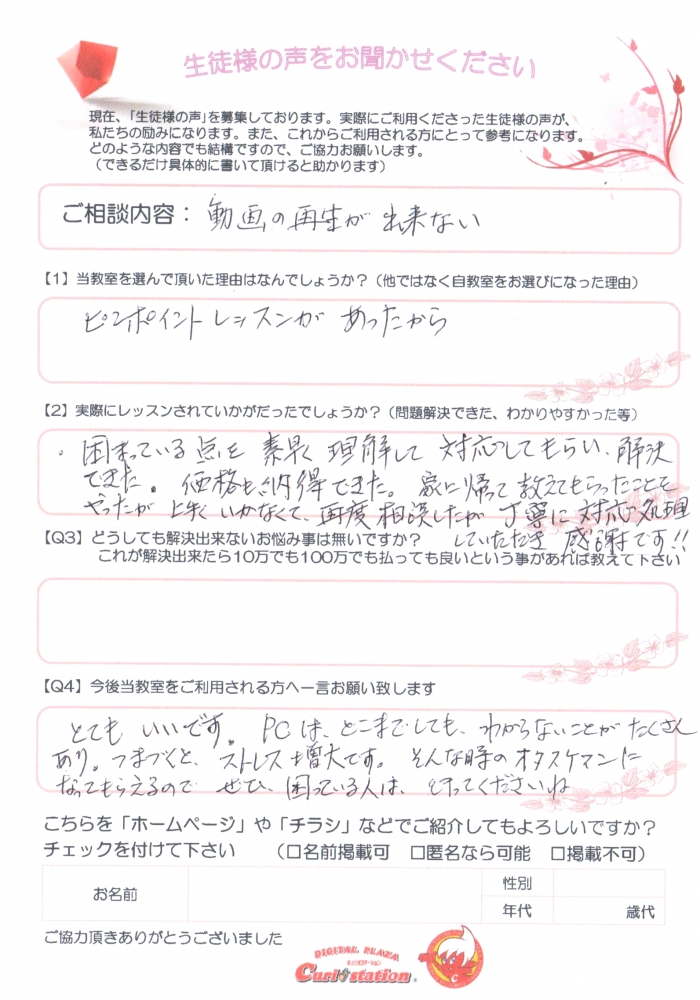 生徒様の声をお聞かせください
現在、「生徒様の声」を募集しております。実際にご利用くださった生徒様の声が、
私たちの励みになります。また、これからご利用される方にとって参考になります。
どのような内容でも結構ですので、ご協力お願いします。
（できるだけ具体的に書いて頂けると助かります）
ご相談内容： 動画の再生が出来ない
【1】当教室を選んで頂いた理由はなんでしょうか？（他ではなく自教室をお選びになった理由）
ピンポイントレッスンが あったから
【2】実際にレッスンされていかがだったでしょうか？（問題解決できた、わかりやすかった等）
・困まっている点を 素早く 理解して 対応してもらい、解決
できた。価格も納得できた。家に帰って教えてもらったことを
やったが 上手く いかなくて、再度相談したが 丁寧に 対応処理
していただき 感謝です!!
【Q3】どうしても解決出来ないお悩み事は無いですか？
これが解決出来たら10万でも100万でも払っても良いという事があれば教えて下さい
【Q4】今後当教室をご利用される方へ一言お願い致します
とても いいです。PCは、どこまでしても、わからないことが たくさん
あり。つまづくと、ストレス増大です。そんな時のオタスケマンに
なってもらえるので ぜひ、困っている人は、 行ってくださいね
こちらを「ホームページ」や「チラシ」などでご紹介してもよろしいですか？
チェックを付けて下さい （□名前掲載可 □匿名なら可能 □掲載不可）
お名前
性別
年代 歳代
ご協力頂きありがとうございました
DIGITAL PLAZA
Curio station